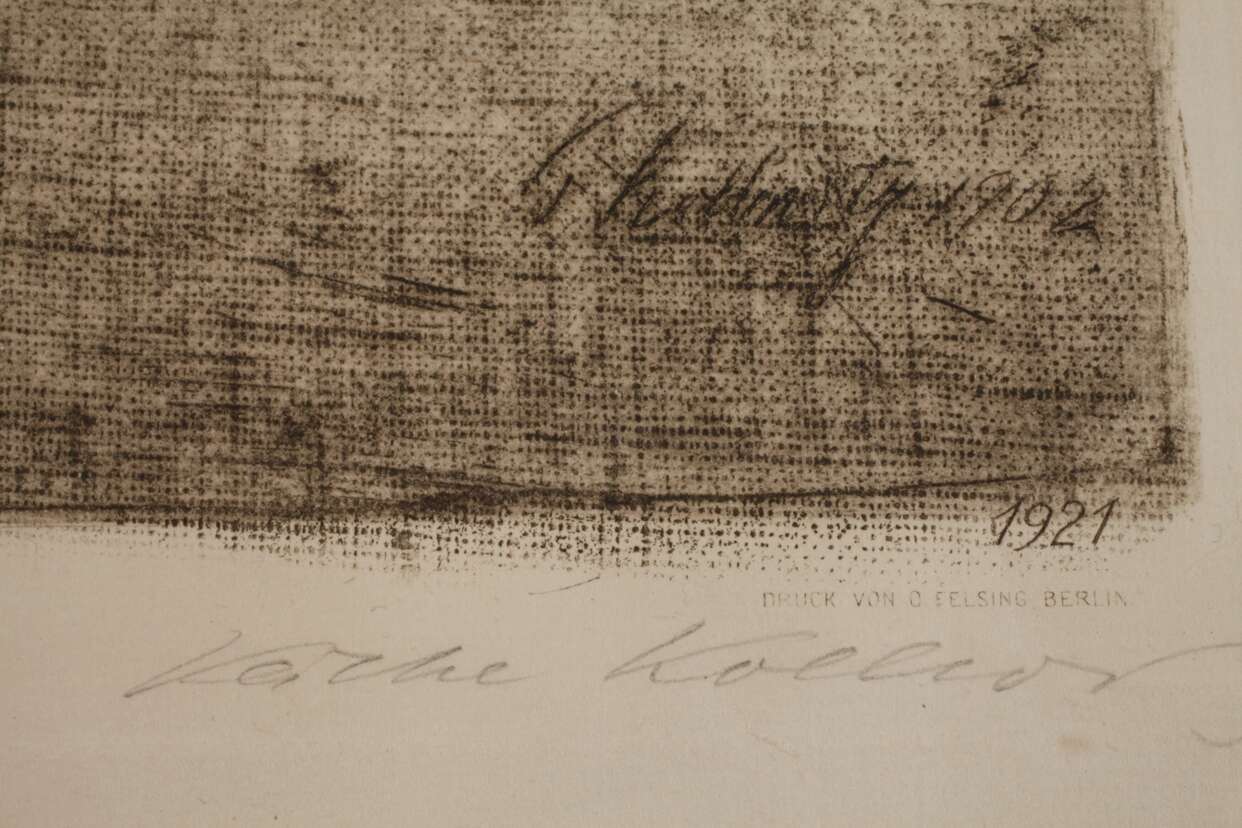 Kollwitz 1902
1921
DRUCK VON O. FELSING, BERLIN.
Käthe Kollwi